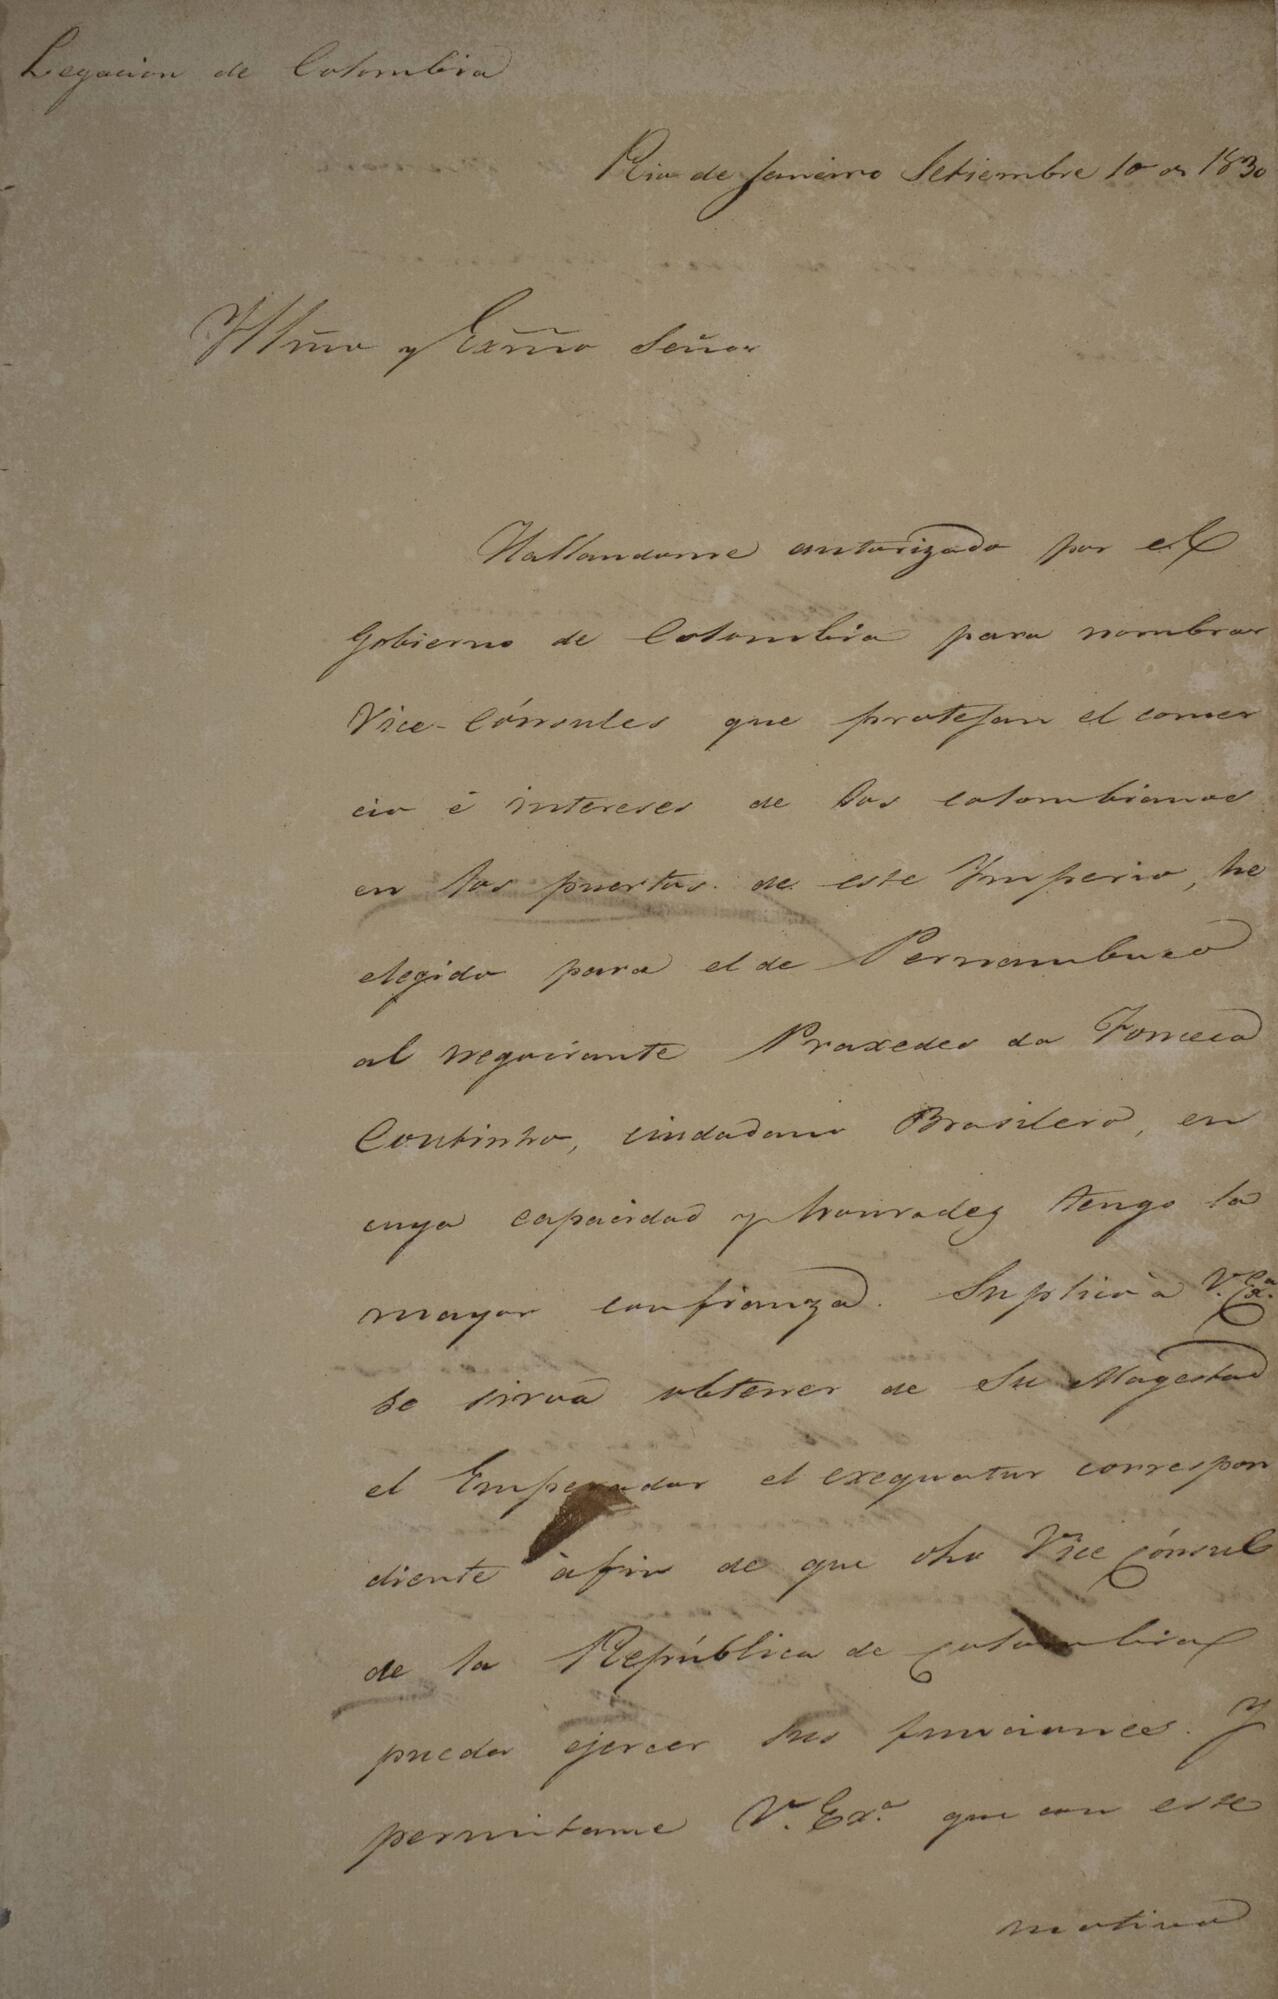 Legacion de Colombia
Rio de Janeiro Setiembre 10 de 1830
Yllmo y Exmo Señor
Hallandome autorizado por el
Gobierno de Colombia para nombrar
Vice-Cónsules que protejan el comer
cio é intereses de los colombianos
en los puertos de este Imperio, he
elegido para el de Pernambuco
al negociante Praxedes da Fonceca
Coutinho, ciudadano Brasilero, en
cuya capacidad y honradez tengo la
mayor confianza. Suplico à V. Exª.
se sirva obtener de Su Magestad
el Emperador el exequatur correspon
diente à fin de que dho Vice Cónsul
de la República de Colombia
pueda ejercer sus funciones. Y
permitame V. Exª. que con este
motivo